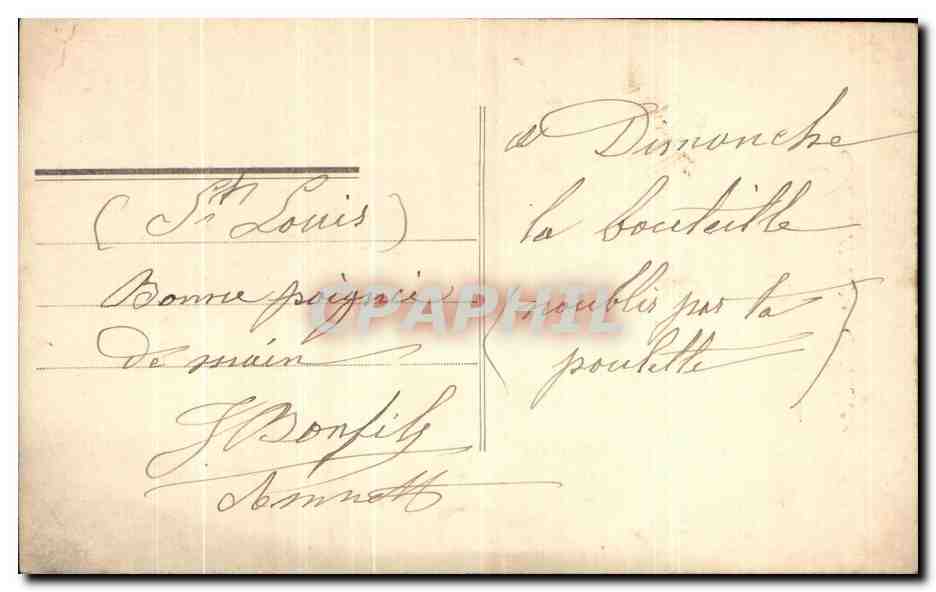 (St Louis)
Bonne poignée
de main
J Bonfils
à Dimanche
la bouteille
(noublis pas la
poulette)
CPAPHIL